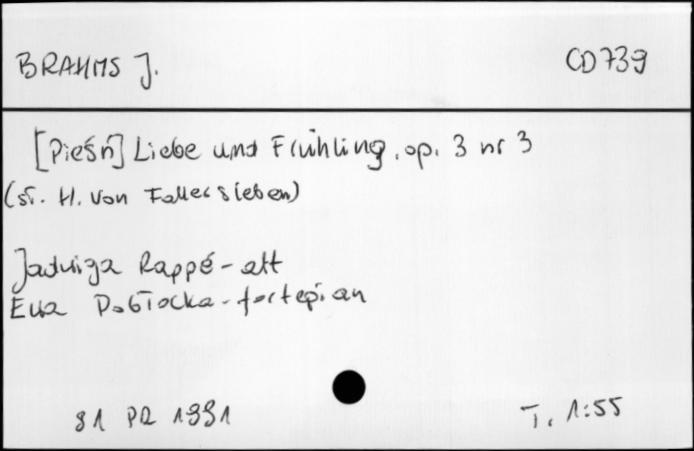 BRAHMS J.
CD 739
[Pieśń] Liebe und Frühling, op. 3 nr 3
(sł. H. von Fallersleben)
Jadwiga Rappé - alt
Ewa Pobłocka - fortepian
91 PR 1991
T. 1:55